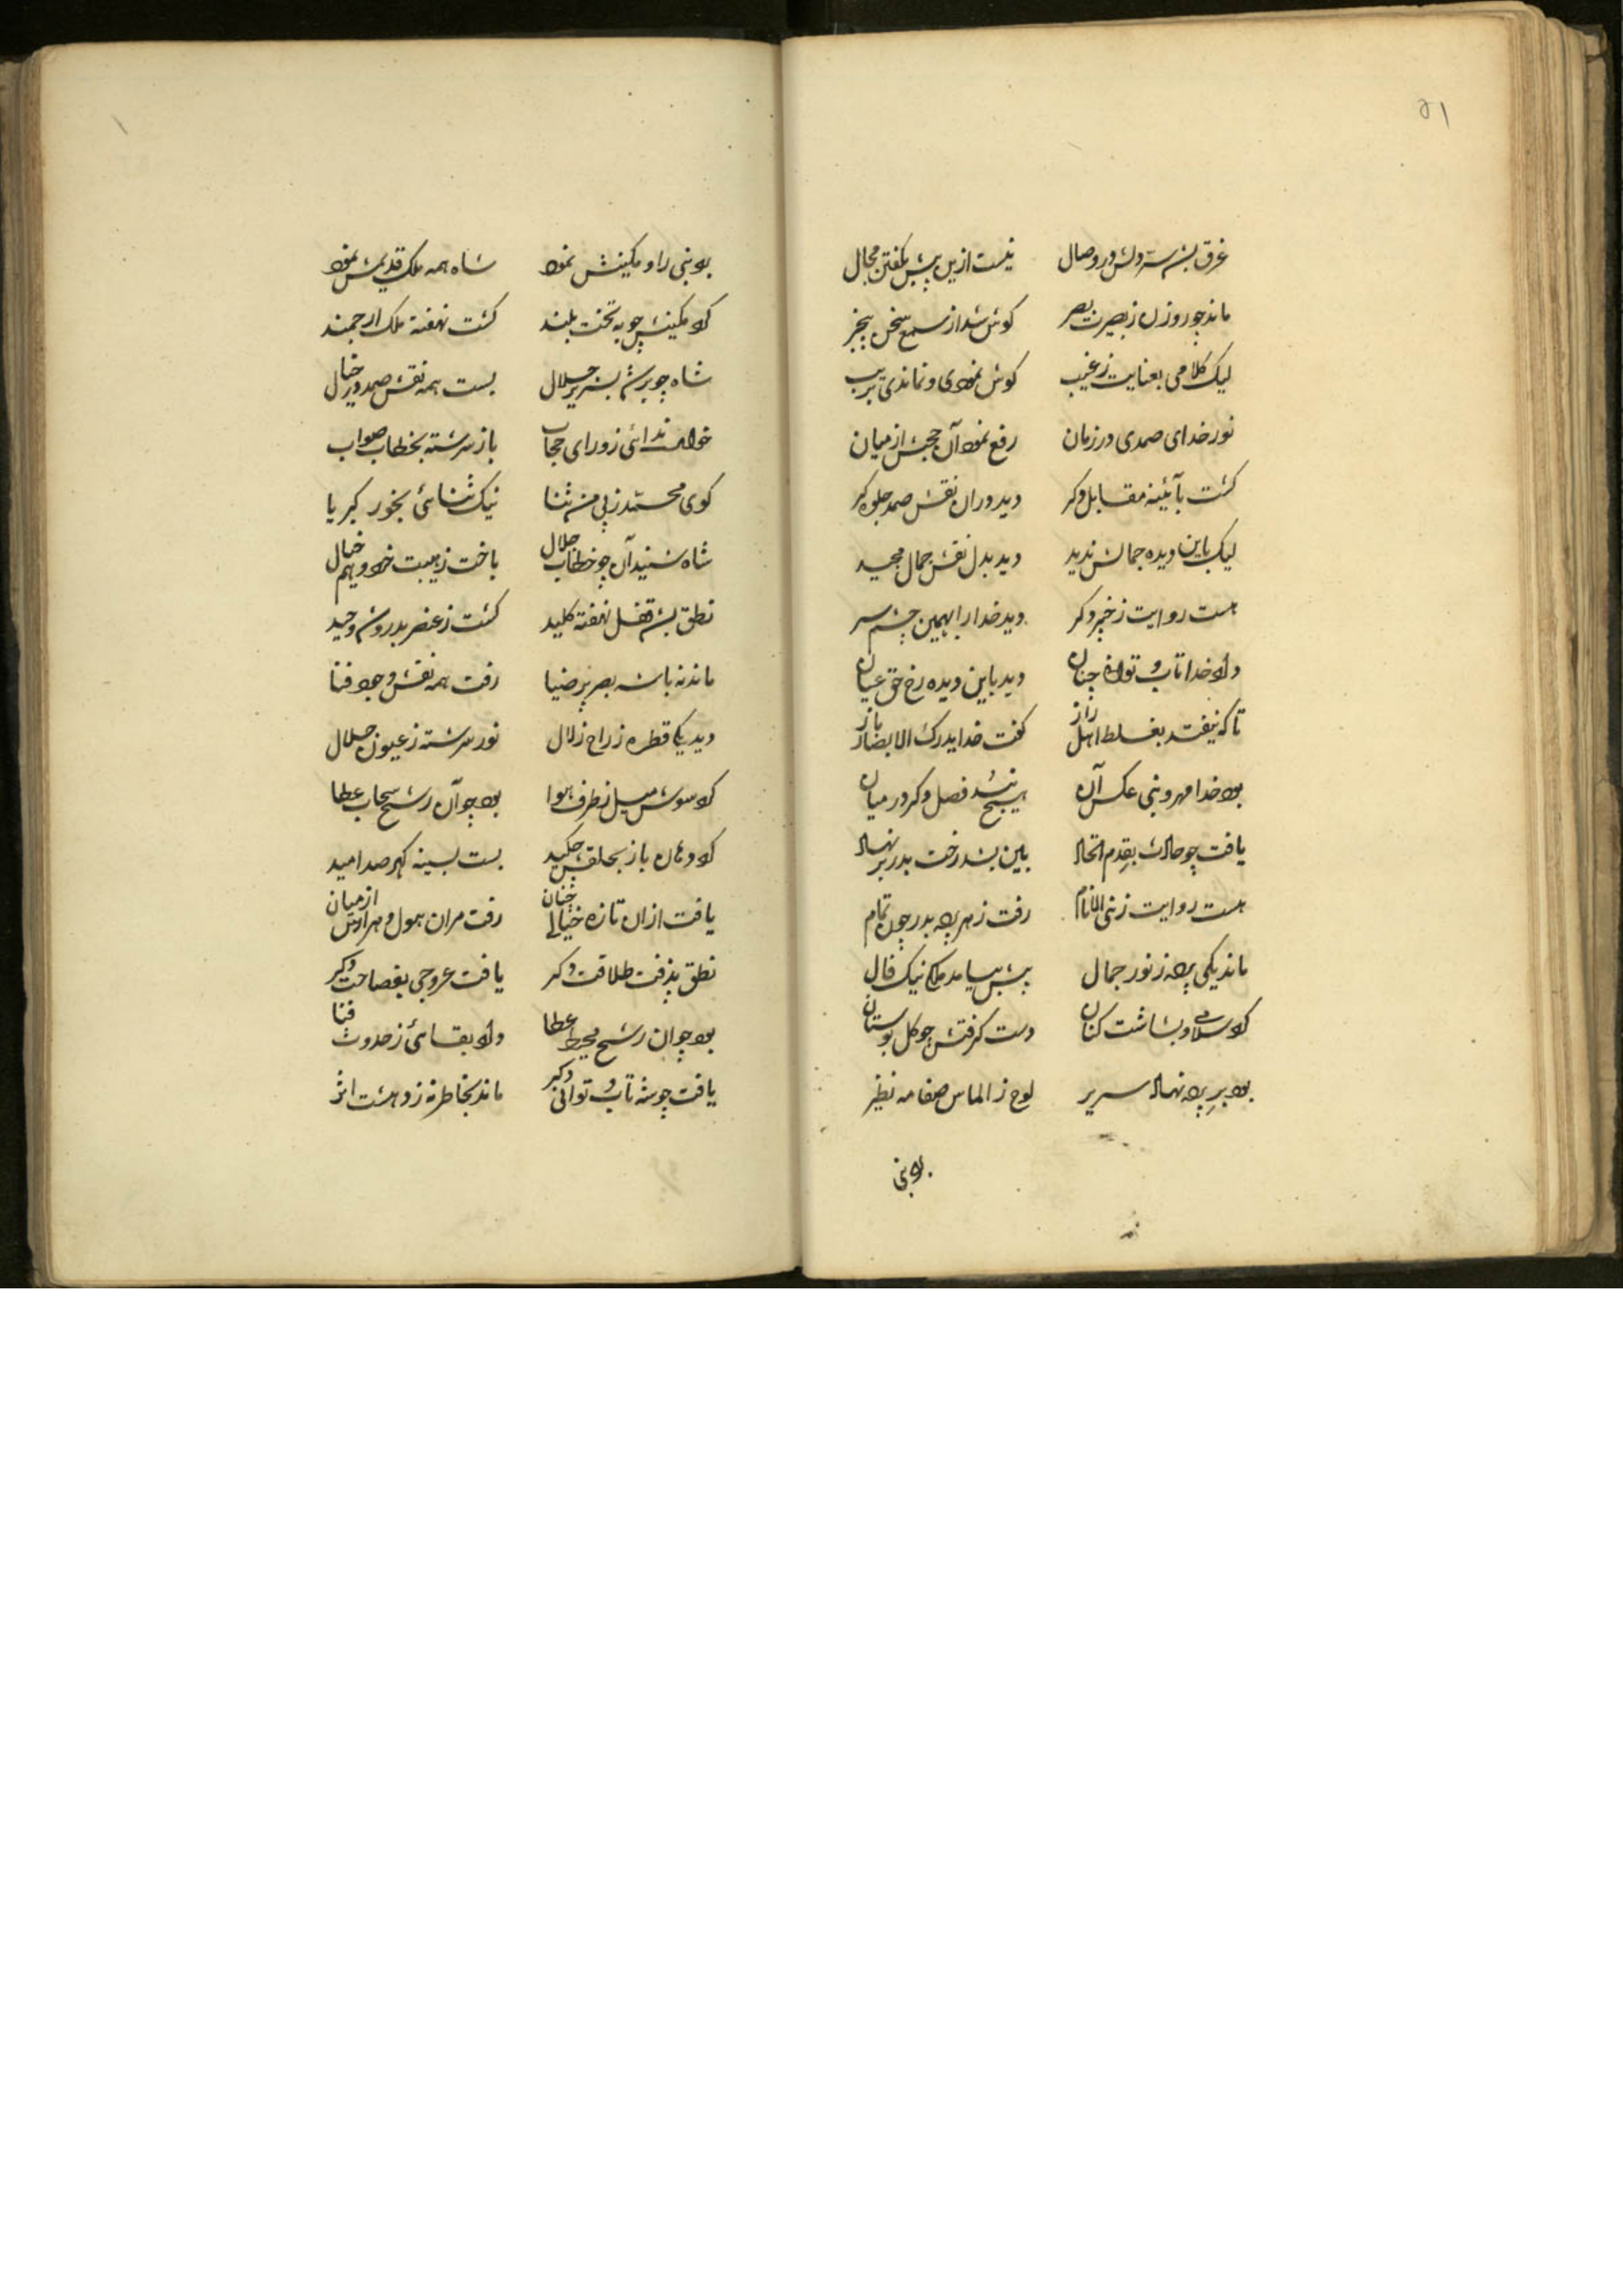 ۵۱
غرق بشد سر دلش در وصال نیست ازین پیش بگفتن مجال
ماند چو روزن ز بصیرت بصر گوش شد از سمع سخن بیخبر
لیک کلامی بعنایت ز غیب گوش نمودی و نماندی بریب
نور خدای صمدی در زمان رفع نمود آن حجب از میان
گشت بآئینه مقابل دگر دید دران نقش صمد جلوه گر
لیک باین دیده جمالش ندید دید بدل نقش جمال مجید
هست روایت ز خبر دگر دید خدا را بهمین چشم سر
داد خدا تاب و توان چنان دید باین دیده رخ حق عیان
تا که نیفتد بغلط اهل راز گفت خدا یدرک الابصار باز
بود خدا مهر و نبی عکس آن هیچ نشد فصل دگر در میان
یافت چو حالت بقدم اتحاد بین بشد رخت بدر بر نهاد
هست روایت ز نبی الانام رفت ز مهر پرده بدر چون تمام
ماند یکی پرده ز نور جمال پیش بیامد ملک نیک فال
کرد سلام و بشاشت کنان دست گرفتش چو گل بوستان
بود بر پرده نهاد سریر لوح ز الماس صفا مه نظیر
بود نبی
بود نبی را و مکینش نمود شاه همه ملک قدیمش نمود
کرد مکینش چو به تخت بلند گشت نهفته ملک ارجمند
شاه چو بر شد بسریر جلال بست همه نقش صمد در خیال
خواست ندائی ز ورای حجاب باز سرشته بخطاب صواب
کوی محمد ز پی من ثنا نیک ثنائی بخور کبریا
شاه شنید آن چو خطاب جلال باخت ز هیبت خرد و هم خیال
نطق بشد قفل نهفته کلید گشت ز عنصر بدرون وحید
ماند نه باشه بصر پر ضیا رفت همه نقش وجود فنا
دید یکی قطره ز راح زلال نور سرشته ز عیون جلال
کرد سوش میل ز طرف هوا بود چو آن رشح سحاب عطا
کرد دهان باز بحلقش چکید بست بسینه گهر صد امید
یافت ازان تازه خیالی چنان رفت مران هول و هراس از میان
نطق پذرفت طلاقت دگر یافت عروجی بفصاحت دگر
بود چو آن رشح محیط عطا داد بقائی ز حدوث فنا
یافت چو شه تاب و توانی دگر ماند بخاطر نه ز دهشت اثر